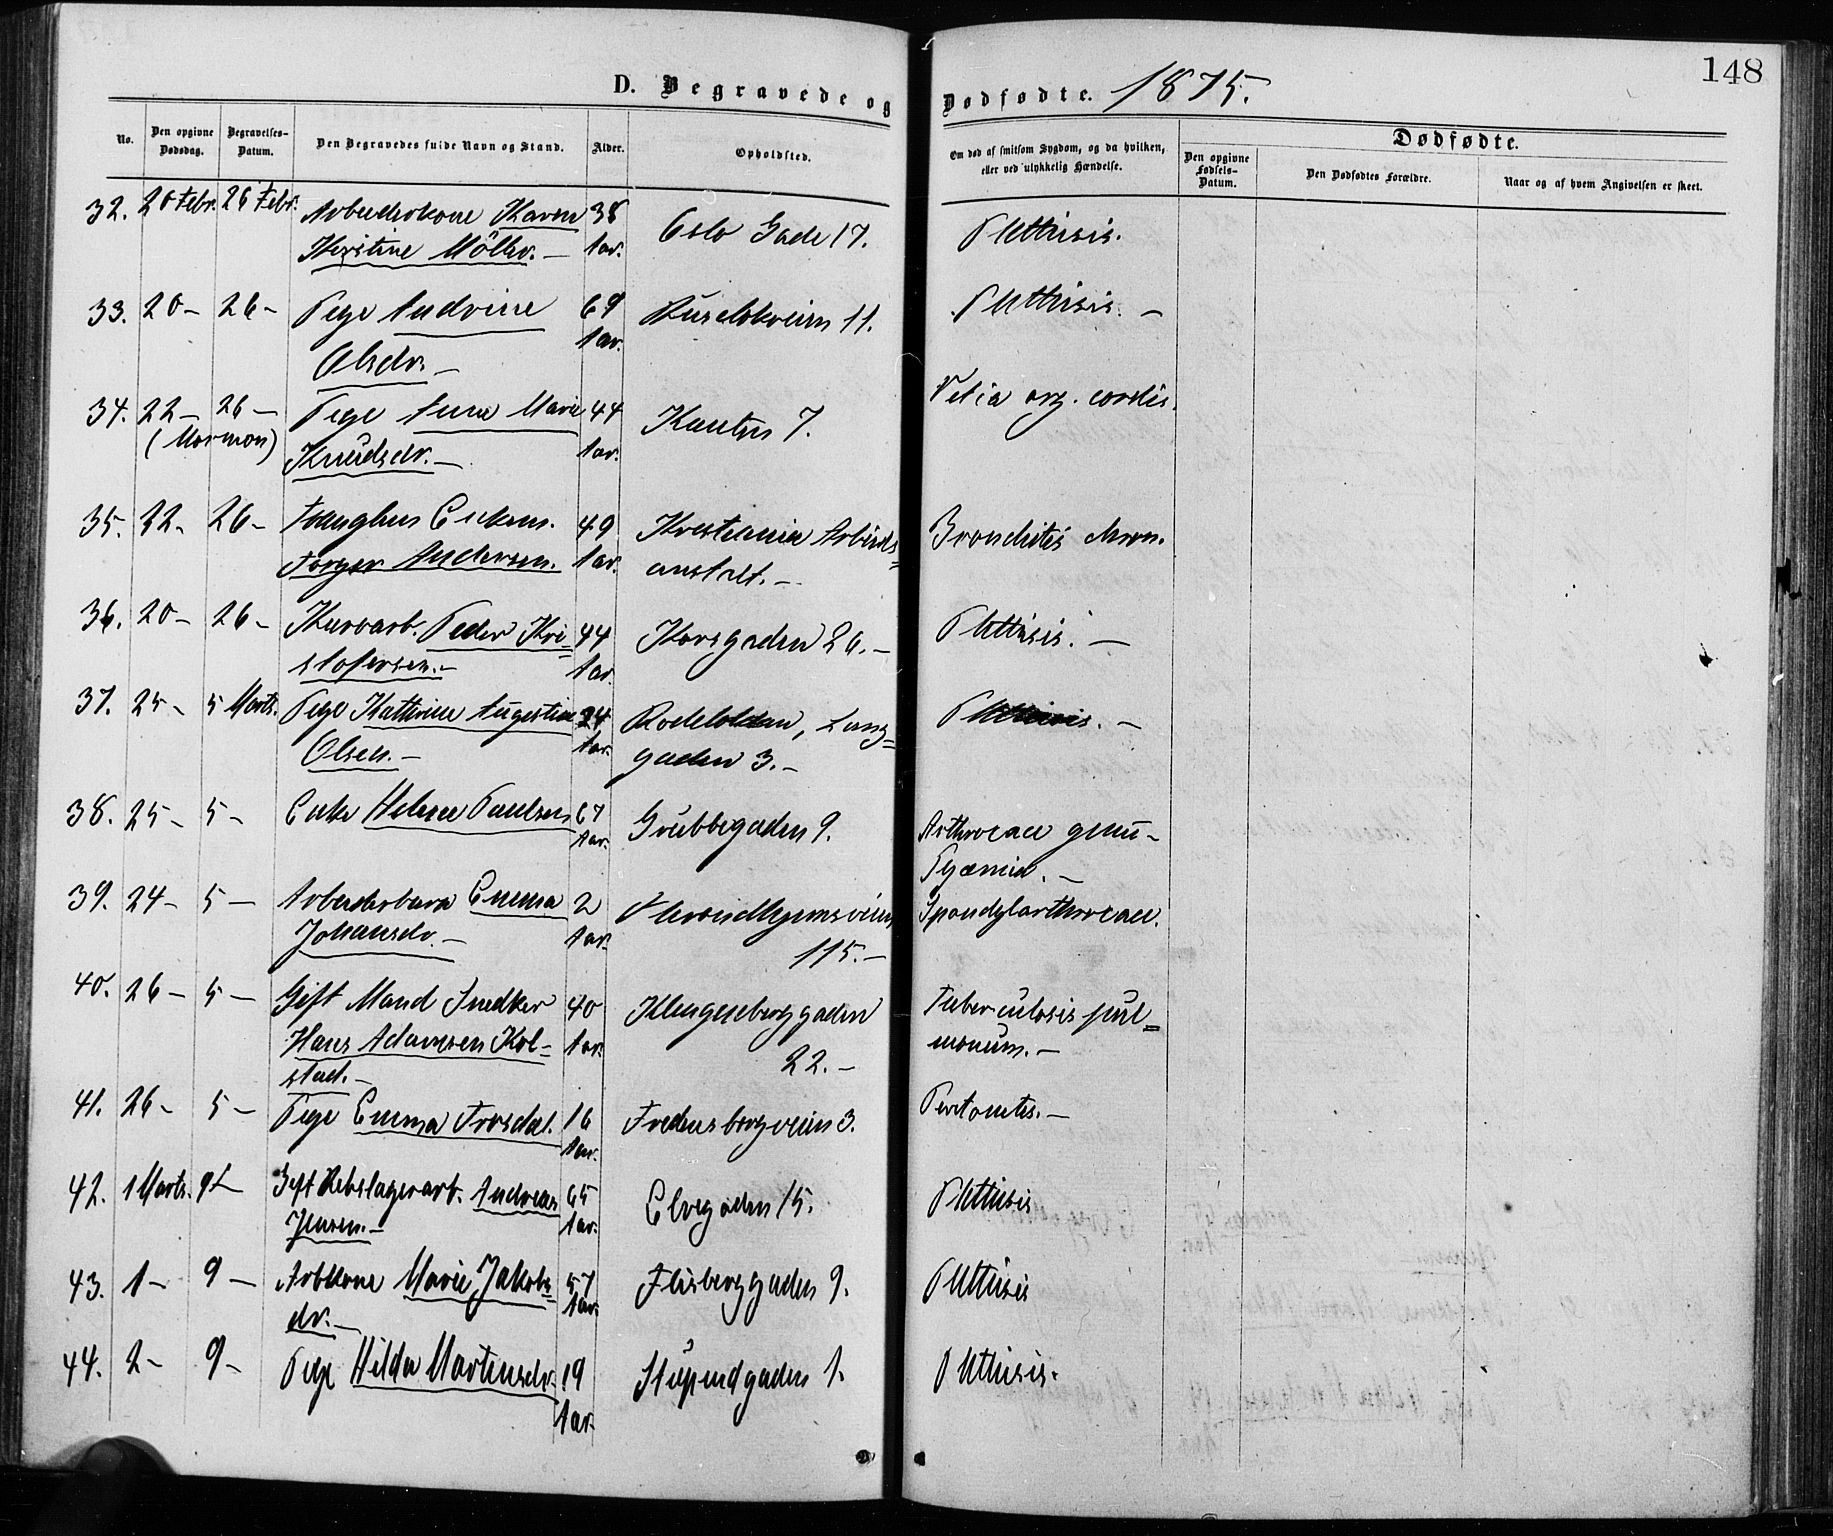 148
D. Begravede og Dødfødte. 1875.
No. Den opgivne Dødsdag. Begravelses-Datum. Den Begravedes fulde Navn og Stand. Alder. Opholdsted. Om død af smitsom Sygdom, og da hvilken, eller ved ulykkelig Hændelse. Dødfødte.
Den opgivne Fødsels-Datum. Den Dødfødtes Forældre. Naar og af hvem Angivelsen er skeet.
32. 20 Febr. 26 Febr. Arbeiderkone Karen 38 Oslo Gade 17. Phthisis.
Kristine Möller. — Aar.
33. 20 — 26 — Pige Andrine 69 Ruseløkveien 11. Phthisis. —
Olsdr. — Aar.
34. 22 — 26 — Pige Anna Marie 44 Kanten 7. Vitia org. cordis.
(Mormon) Knudsdr. — Aar.
35. 22 — 26 — Enkem. 49 Kristiania Arbeids= Bronchitis chron.
Torger Andersen. Aar. anstalt. —
36. 20 — 26 — Peder Kri= 44 Korsgaden 26. — Phthisis. —
stofersen. — Aar.
37. 25 — 5 Marts. Pige Kathrine Augustine 24 Rodeløkken, Lang= Phthisis. —
Olsen. — Aar. gaden 3. —
38. 25 — 5 — Enke Helene Paulsen 67 Grubbegaden 9. Arthrocace genu —
Aar. Pyæmia. —
39. 24 — 5 — Arbeiderbarn Emma 2 Throndhjemsveien Spondylarthrocace.
Johansdr. — Aar. 115. —
40. 26 — 5 — Gift Mand Snedker 40 Klingenberggaden Tuberculosis pul=
Hans Adamsen Kol= Aar. 22. — monum. —
stad. —
41. 26 — 5 — Pige Emma Frosdal. 16 Fredensborgveien 3. Peritonitis. —
Aar.
42. 1 Marts. 9 — Gift Rebslagerarb. Andreas 65 Elvegaden 15. Phthisis
Jensen. — Aar.
43. 1 — 9 — Arbkone Marie Jakobs= 57 Flisberggaden 9. Phthisis
dr. — Aar.
44. 2 — 9 — Pige Hilda Martinsdr. 19 Stupendgaden 1. Phthisis.
Aar.